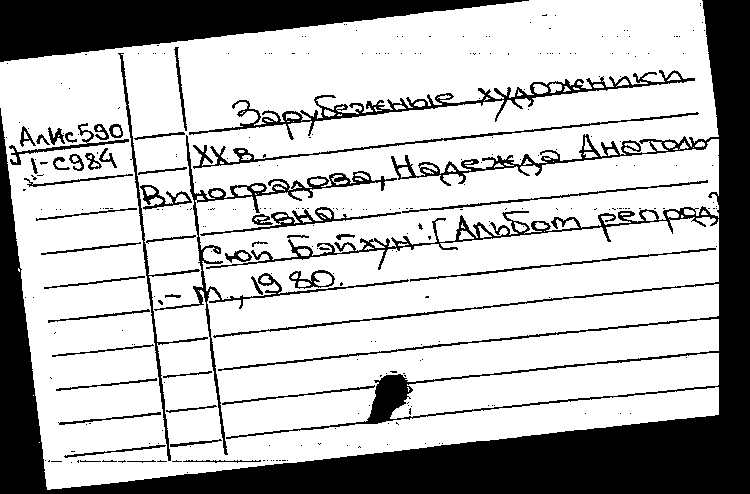 Зарубежные художники
АлИс590
XX в.
I-С984
Виноградова, Надежда Анатоль
евна.
Сюй Бэйхун: [Альбом репрод]
.– М., 1980.